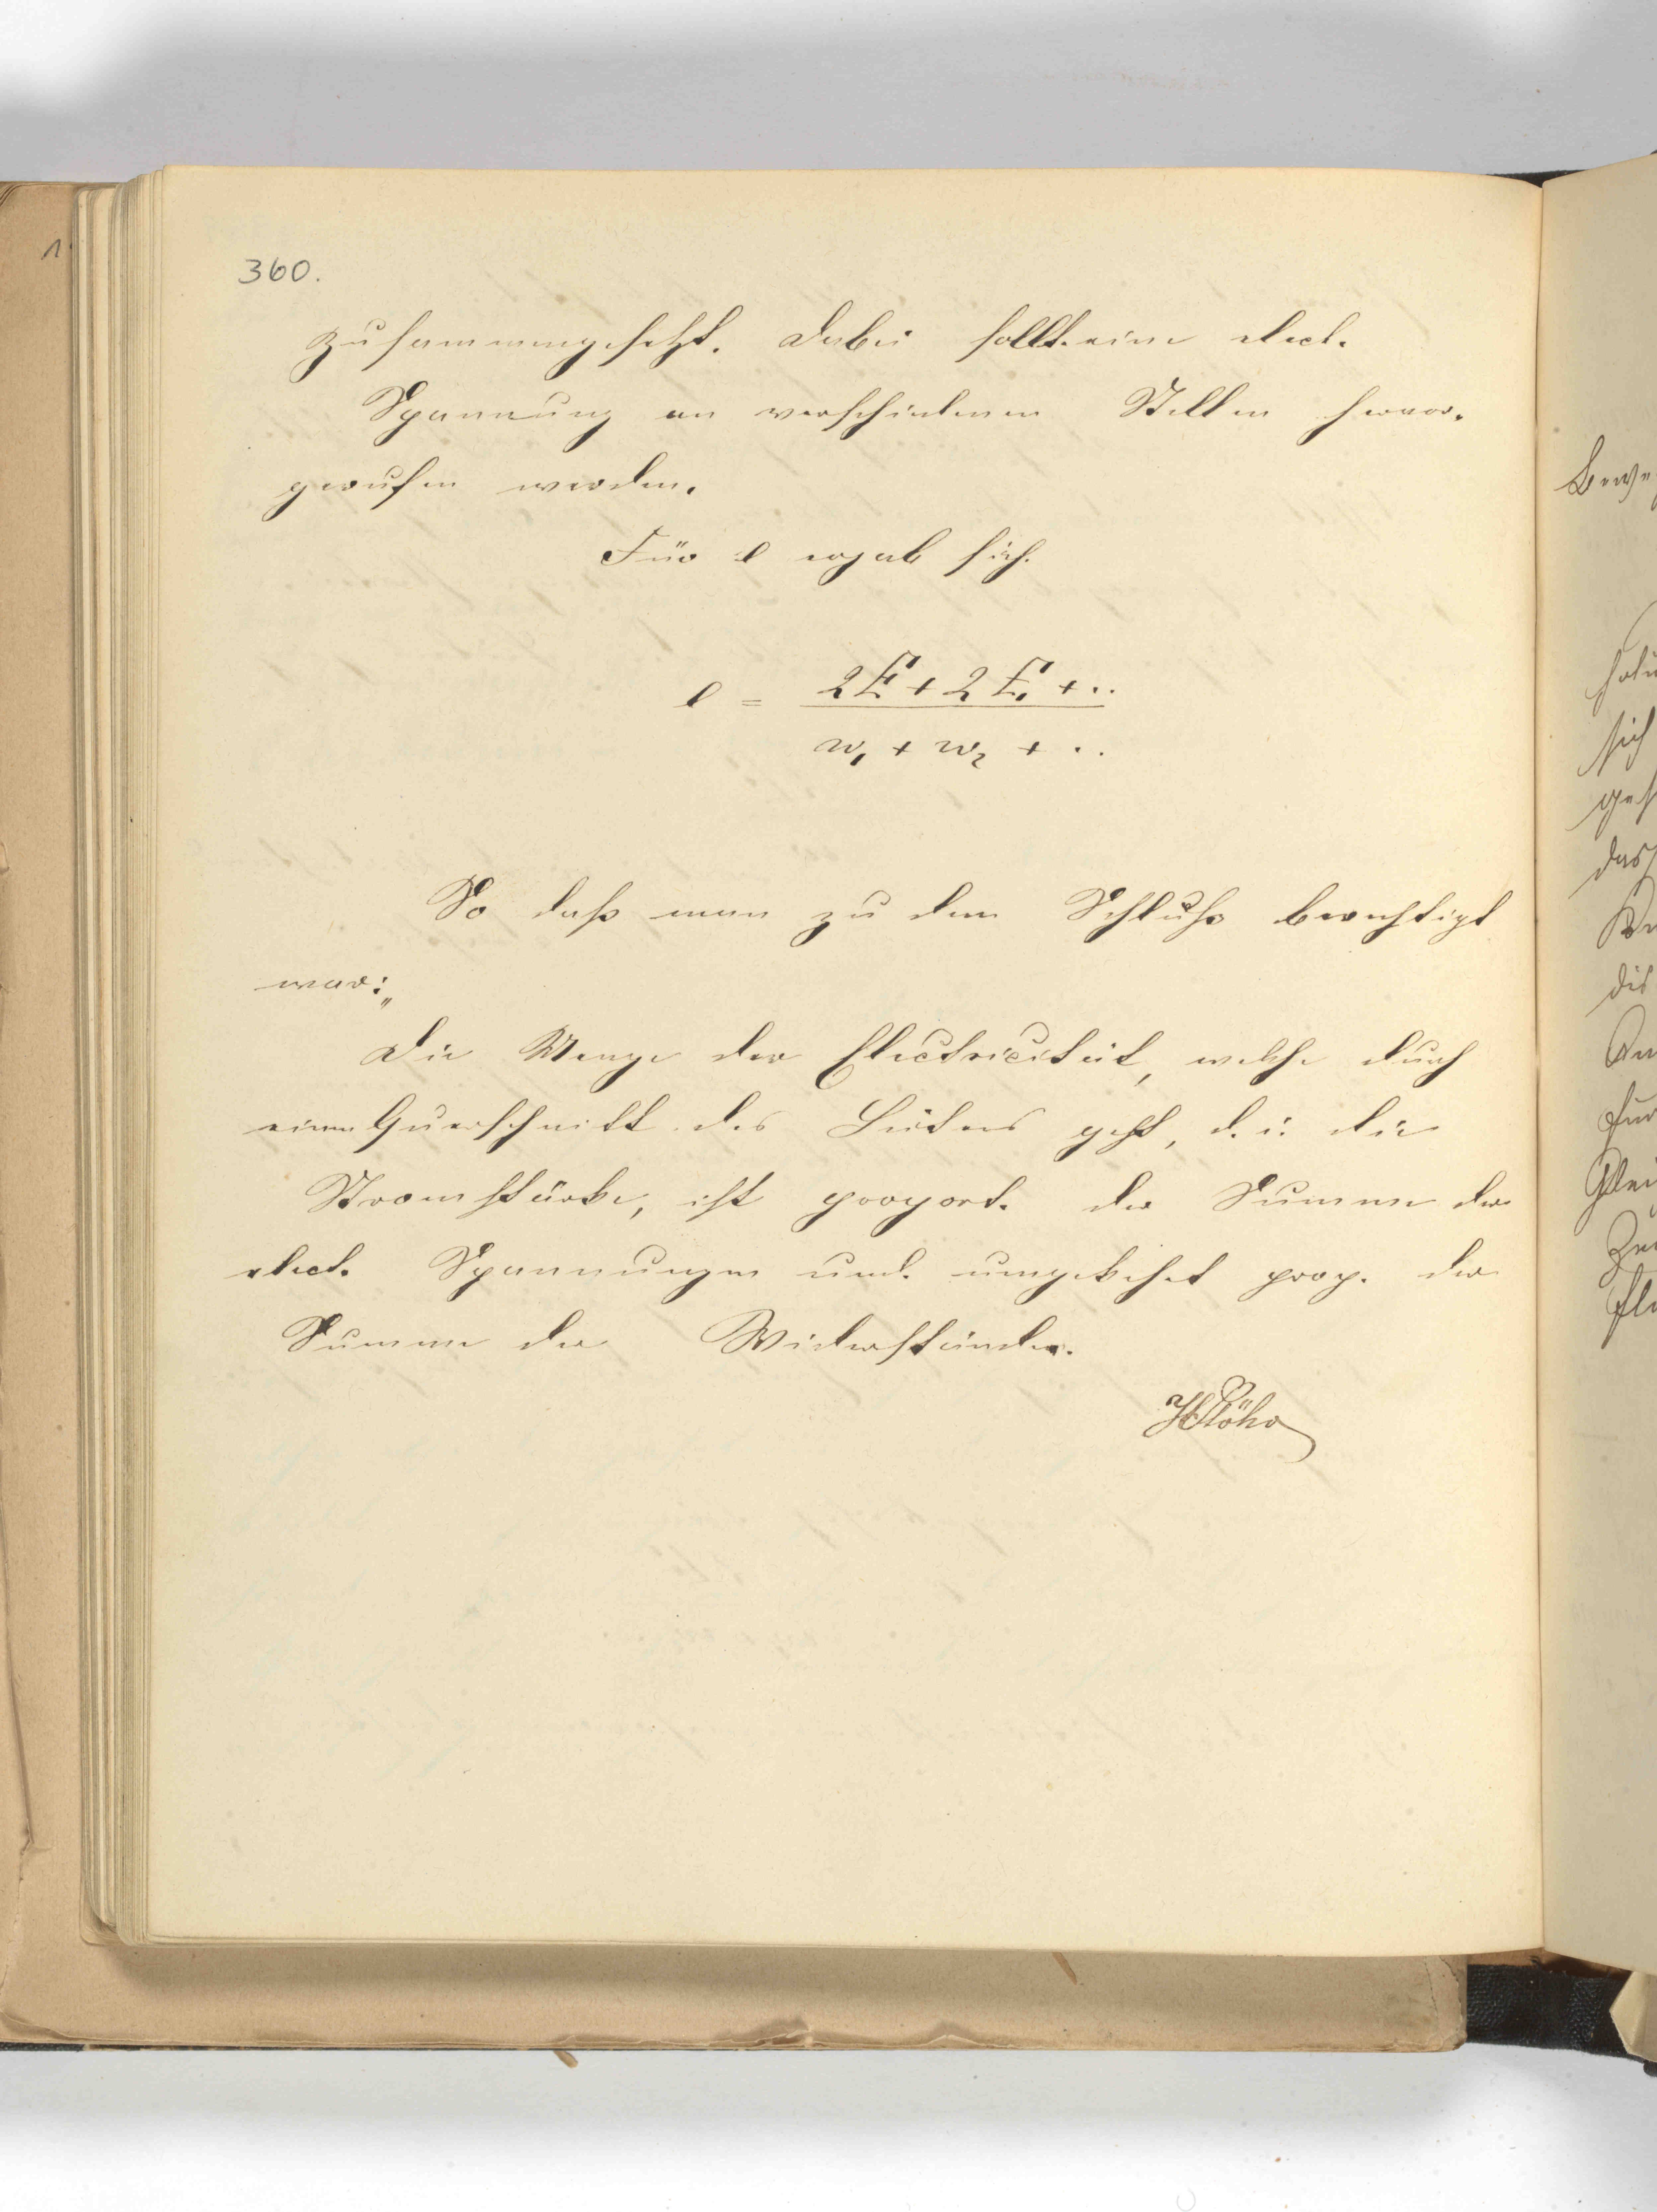 360.
zusammengesetzt. Dabei sollte eine elect.
Spannung an verschiedenen Stellen hervor-
gerufen werden.
Für e ergab sich.
e = (2E + 2E₁ + ..) / (w₁ + w₂ + ..)
So daß man zu dem Schluße berechtigt
war:„
Die Menge der Electricität, welche durch
einen Querschnitt des Leiters geht, d. i. die
Stromstärke, ist proport. der Summe der
elect. Spannungen und umgekehrt prop. der
Summe der Widerstände.